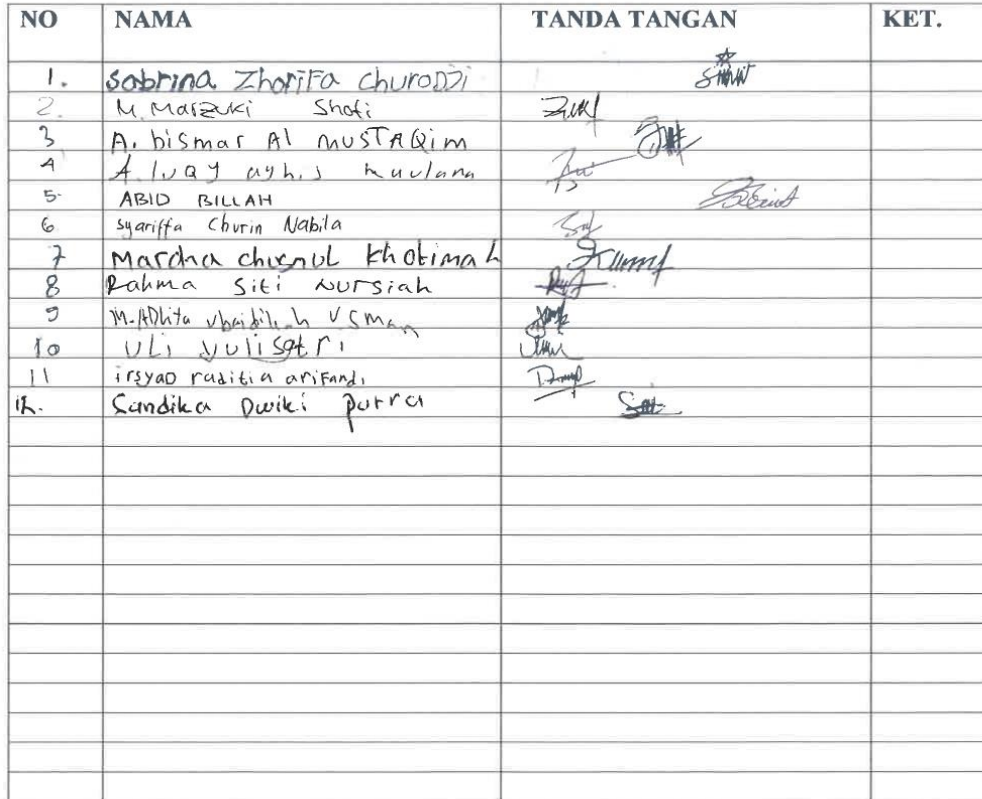 NO NAMA TANDA TANGAN KET.
1. Sabrina Zhorifa Churodzi
2. M. Marzuki Shofi
3 A. bismar Al musTAQim
4 A. luqy ayhis maulana
5. ABID BILLAH
6 syariffa Churin Nabila
7 Marcha chusnul khotimah
8 Rahma Siti Nursiah
9 M. ADhita Ubaidillah Usman
10 ULi yulisatri
11 irsyaD raditia ariFandi
12. Sandika Dwiki putra